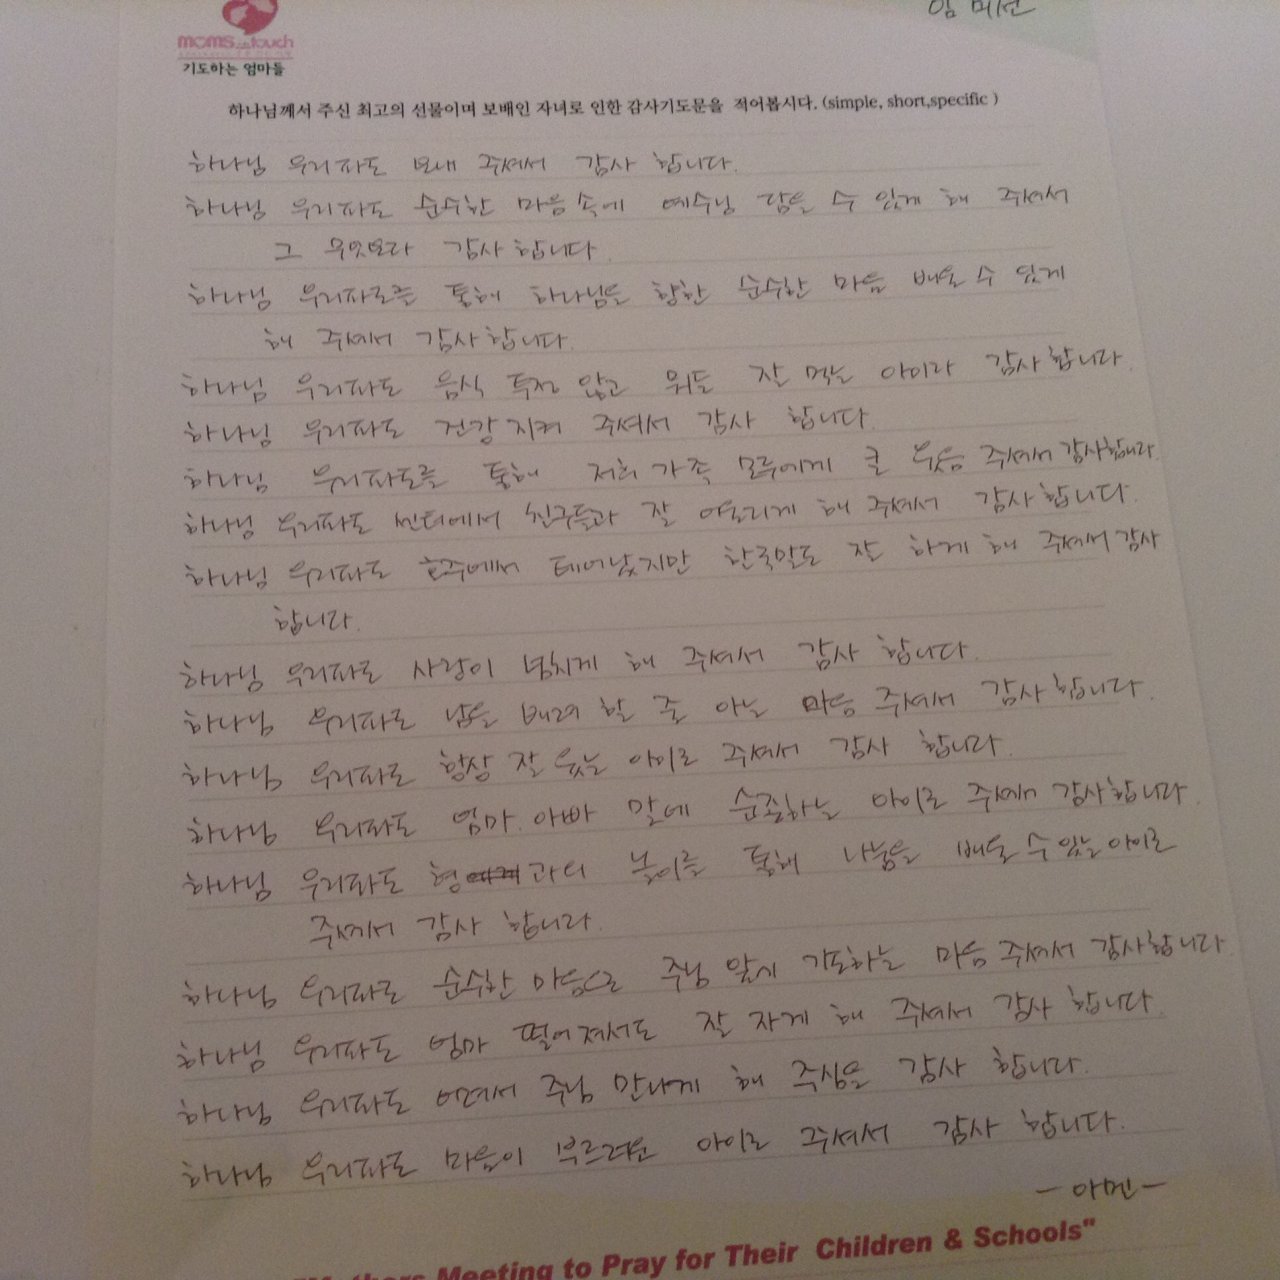 임 미선
moms in touch
기도하는 엄마들
하나님께서 주신 최고의 선물이며 보배인 자녀로 인한 감사기도문을 적어봅시다. (simple, short,specific )
하나님 우리파도 보내 주셔서 감사 합니다.
하나님 우리파도 순수한 마음속에 예수님 담을 수 있게 해 주셔서
그 무엇보다 감사합니다.
하나님 우리파도를 통해 하나님을 향한 순수한 마음 배울 수 있게
해 주셔서 감사합니다.
하나님 우리파도 음식 투정 않고 뭐든 잘 먹는 아이라 감사합니다.
하나님 우리파도 건강 지켜 주셔서 감사 합니다.
하나님 우리파도를 통해 저희 가족 모두에게 큰 웃음 주셔서 감사합니다.
하나님 우리파도 센터에서 친구들과 잘 어울리게 해 주셔서 감사합니다.
하나님 우리파도 호주에서 태어났지만 한국말도 잘 하게 해 주셔서 감사
합니다.
하나님 우리파도 사랑이 넘치게 해 주셔서 감사 합니다.
하나님 우리파도 남을 배려 할 줄 아는 마음 주셔서 감사합니다.
하나님 우리파도 항상 잘 웃는 아이로 주셔서 감사 합니다.
하나님 우리파도 엄마. 아빠 말에 순종하는 아이로 주셔서 감사합니다.
하나님 우리파도 형과의 놀이를 통해 나눔을 배울 수 있는 아이로
주셔서 감사 합니다.
하나님 우리파도 순수한 마음으로 주님 앞에 기도하는 마음 주셔서 감사합니다.
하나님 우리파도 엄마 떨어져서도 잘 자게 해 주셔서 감사 합니다.
하나님 우리파도 어려서 주님 만나게 해 주심을 감사 합니다.
하나님 우리파도 마음이 부르러운 아이로 주셔서 감사 합니다.
- 아멘 -
Mothers Meeting to Pray for Their Children & Schools"